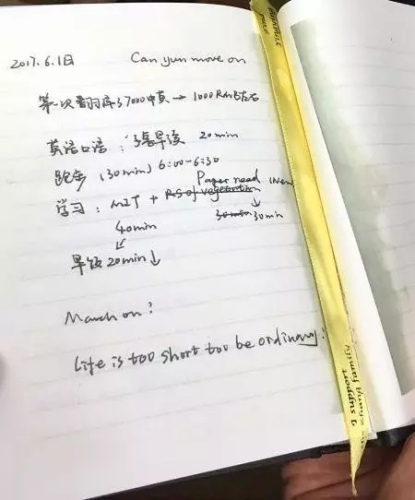 2017.6.1日 Can yun move on
第一次翻译 7000中英 → 1000RMB左右
英语口语: 早读 20min
跑步 (30min) 6:00-6:30
Paper read
学习: + RS of vegetation
40min 30min 30min
早饭 20min ↓
March on!
Life is too short too be ordinary!